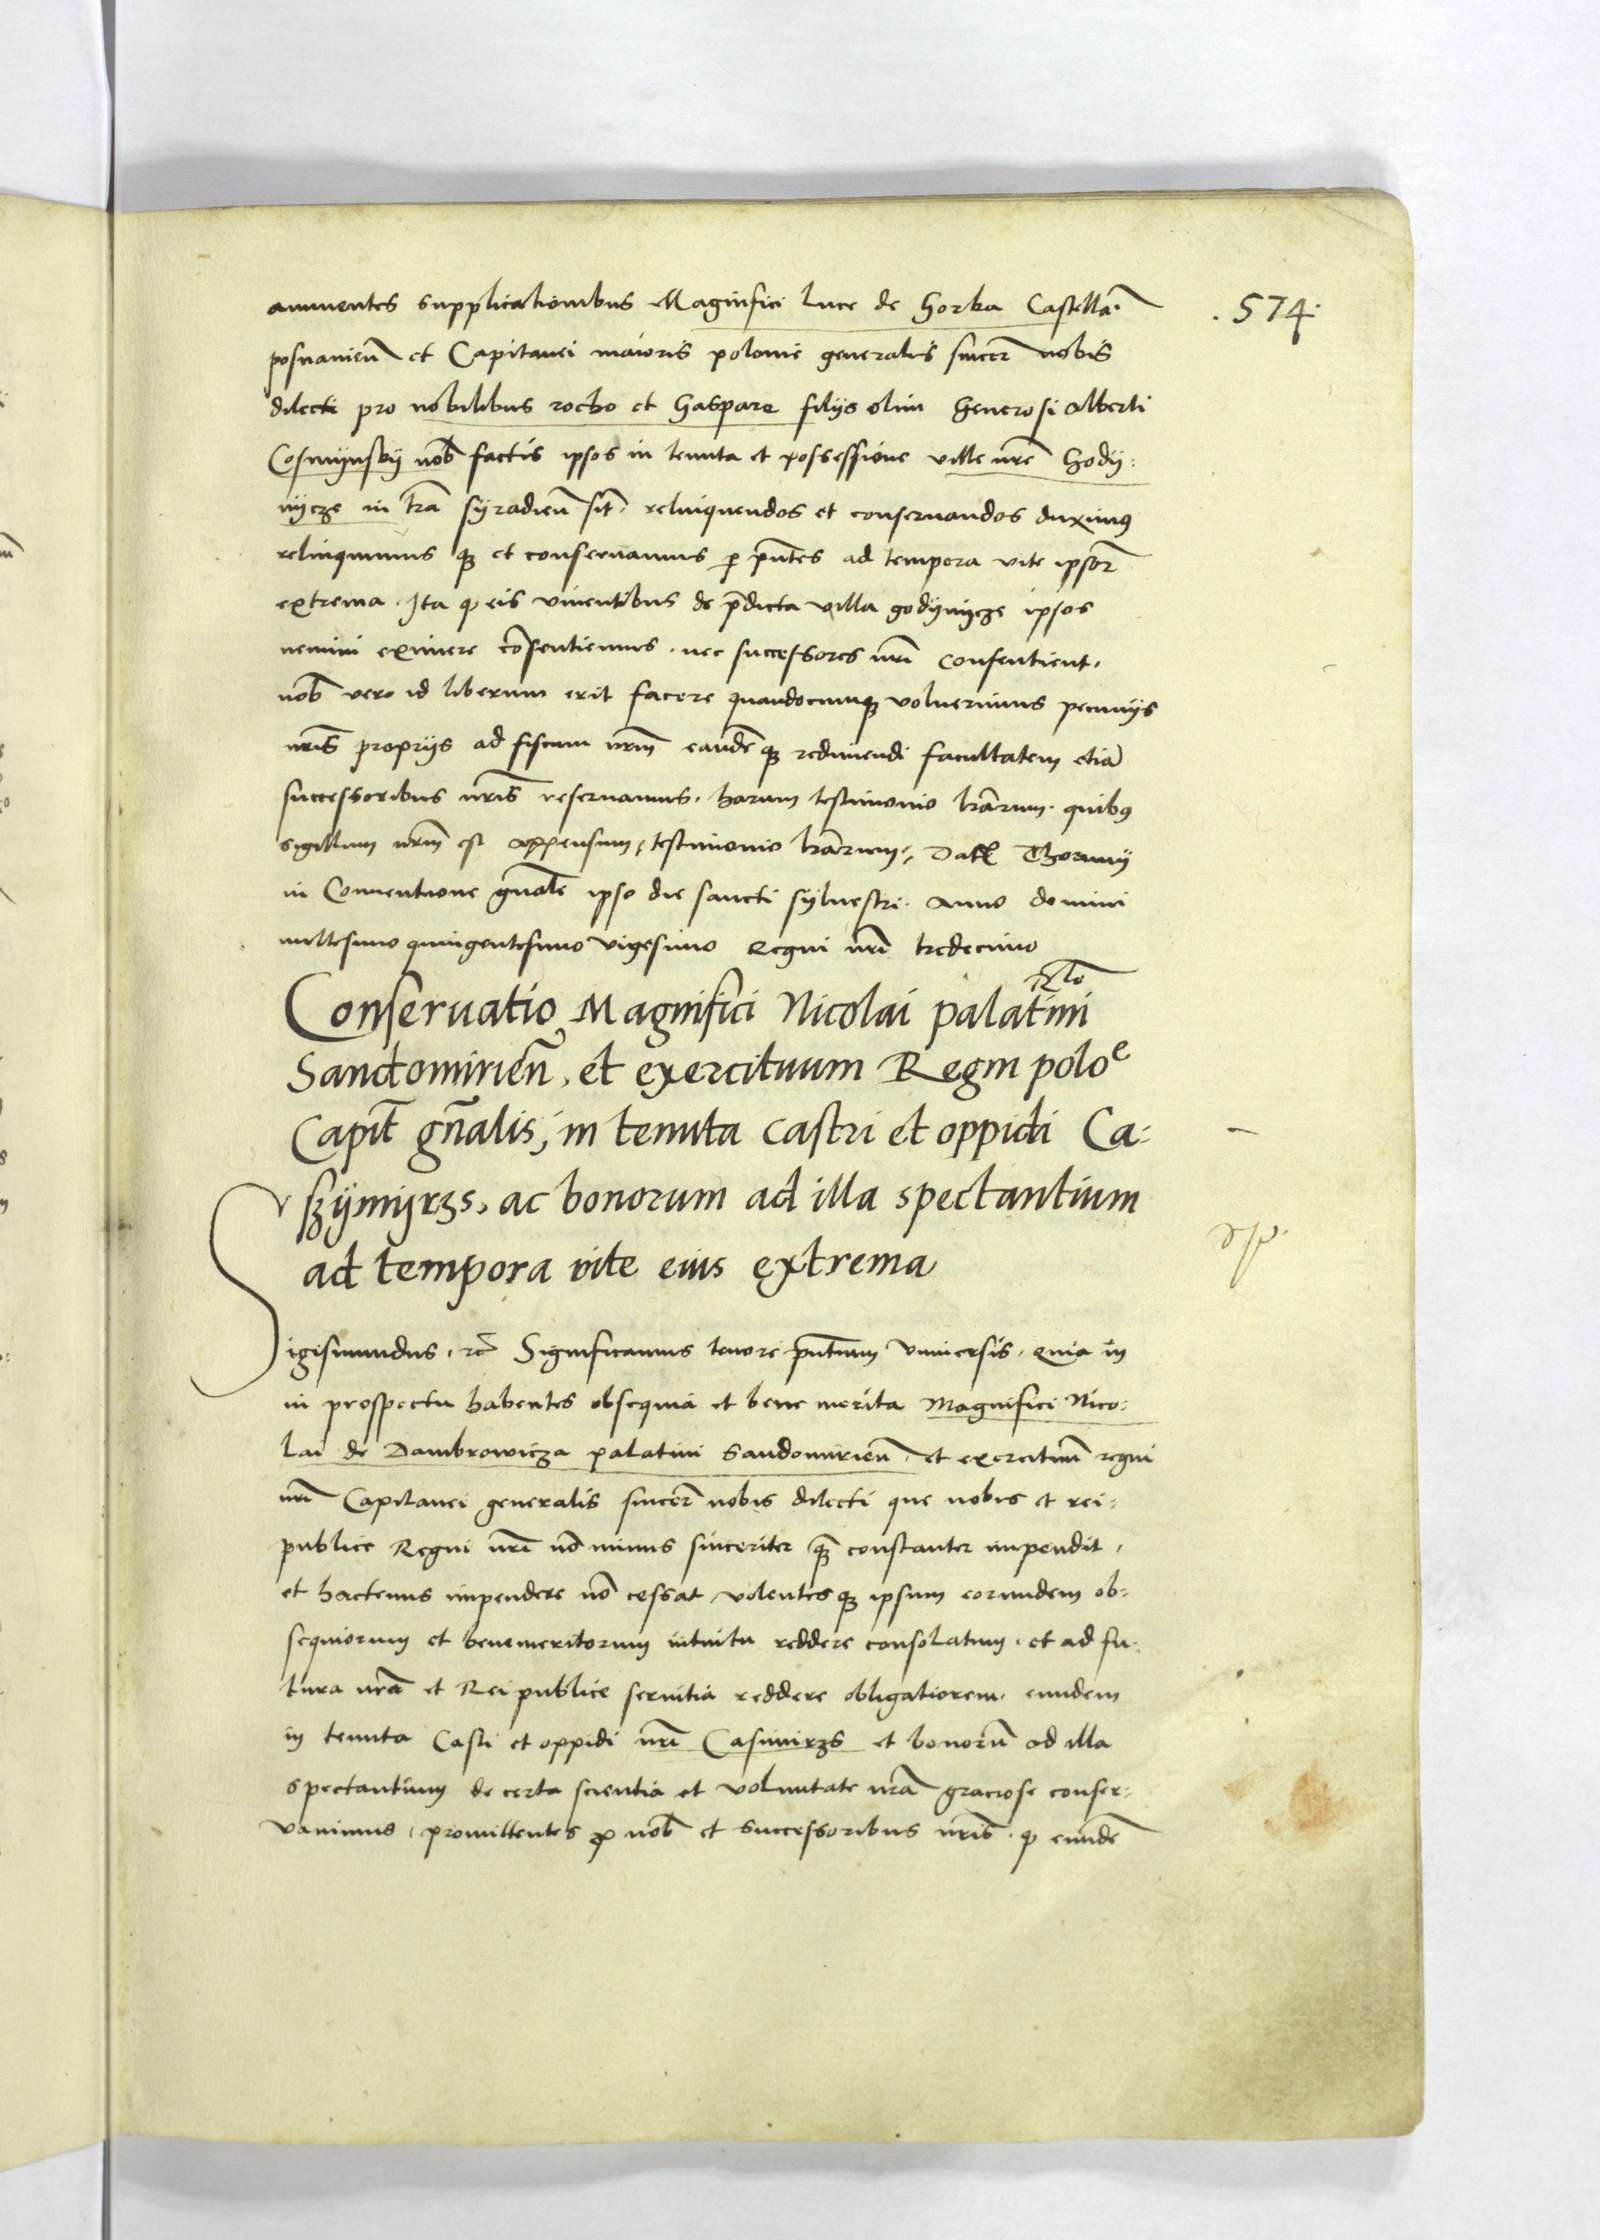 annuentes supplicationibus Magnifici Luce de Gorka Castella͂.
. 574 .
posnanien͂ et Capitanei maioris polonie generalis sincer͂ nobis
dilecti pro nobilibus rocho et Gaspare filijs olim Generosi Alberti
Cosmijnskij nob̄ factis ipsos in tenuta et possessione ville nr̄e Godij:
nijcze in tr̄a syradien͂ sit̄. relinquendos et conseruandos duximꝰ
relinquimus qꝫ et conseruamus ꝑ pn̄tes ad tempora vite ipsor͂
extrema. Ita ꝙ eis viuentibus de p̄dicta villa godijnijcze ipsos
nemini eximere cōsentiemus. nec successores nr̄i consentient.
nob̄ vero id liberum erit facere quandocumqꝫ voluerimus pecunijs
nr̄is proprijs ad fiscum nr̄m eandēqꝫ redimendi facultatem etiā
successoribus nr̄is reseruamus. harum testimonio lr̄arum. quibꝰ
sigillum nr̄m est appensum, testimonio lr̄arum. Datꝫ Thorunij
in Conuentione gn̄ale ipso die sancti syluestri. Anno domini
millesimo quingentesimo vigesimo Regni nr̄i tredecimo
Rl̄o
Conseruatio Magnifici Nicolai palatini
Sandomirien͂, et exercituum Regni poloᵉ
Capit̄ gn̄alis, in tenuta castri et oppidi Ca:
szijmijrzs, ac bonorum ad illa spectantium
ad tempora vite eius extrema
Sigismundus. rc̄ Significamus tenore pn̄tium Vniuersis. quia in
in prospectu habentes obsequia et bene merita Magnifici Nico:
lai de Dambrowicza palatini Sandomirien͂. et exercituū regni
nr̄i Capitanei generalis sincer͂ nobis dilecti que nobis et rei:
publice Regni nr̄i nō minus sinceriter qꝫ constanter impendit,
et hactenus impendere nō cessat, volentes qꝫ ipsum eorundem ob:
sequiorum et benemeritorum intuitu reddere consolatum. et ad fu:
tura nr̄a et Rei publice seruitia reddere obligatiorem. eundem
in tenuta Casti et oppidi nr̄i Casimirzs et bonorū ad illa
spectantium de certa scientia et voluntate nr̄a graciose conser:
vauimus. promittentes ꝓ nob̄ et successoribus nr̄is. ꝙ eundē